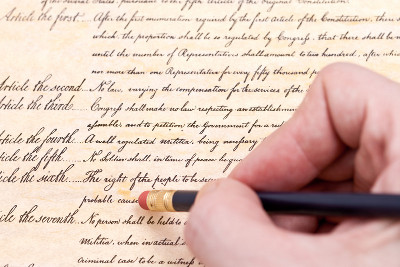 of the several States, pursuant to the fifth Article of the original Constitution.
Article the first.... After the first enumeration required by the first Article of the Constitution, there s
which the proportion shall be so regulated by Congress, that there shall be n
until the number of Representatives shall amount to two hundred, after whic
nor more than one Representative for every fifty thousand p
Article the second No law, varying the compensation for the services of the
Article the third. Congress shall make no law respecting an establishmen
assemble, and to petition the Government for a red
Article the fourth. A well regulated militia, being necessary
Article the fifth. No Soldier shall, in time of peace be qua
Article the sixth.... The right of the people to be secu
probable cause
cle the seventh. No person shall be held to
Militia, when in actual s
criminal case to be a witness